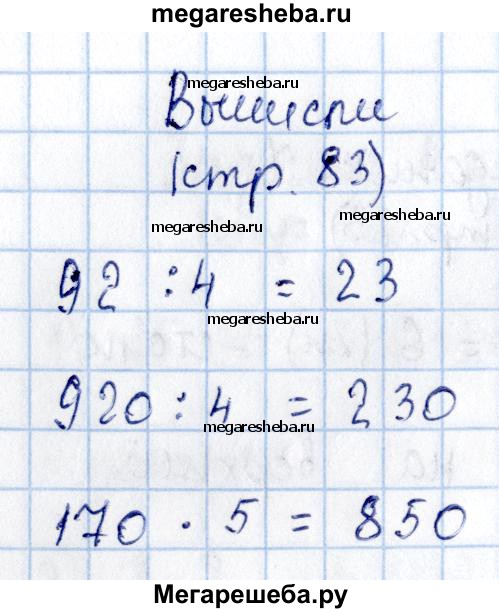 megaresheba.ru
megaresheba.ru
Вычисли
(стр. 83)
megaresheba.ru
megaresheba.ru
92 : 4 = 23
megaresheba.ru
920 : 4 = 230
megaresheba.ru
170 · 5 = 850
Мегарешеба.ру